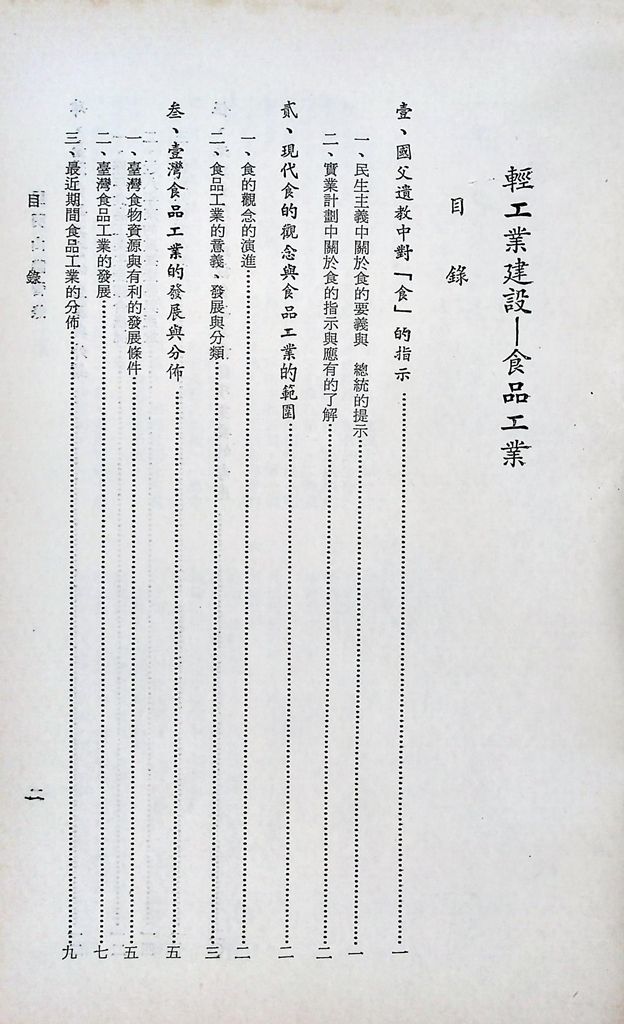 輕工業建設—食品工業
目錄
壹、國父遺教中對「食」的指示……一
一、民生主義中關於食的要義與　總統的提示……一
二、實業計劃中關於食的指示與應有的了解……二
貳、現代食的觀念與食品工業的範圍……二
一、食的觀念的演進……二
二、食品工業的意義、發展與分類……三
叁、臺灣食品工業的發展與分佈……五
一、臺灣食物資源與有利的發展條件……五
二、臺灣食品工業的發展……七
三、最近期間食品工業的分佈……九
目錄